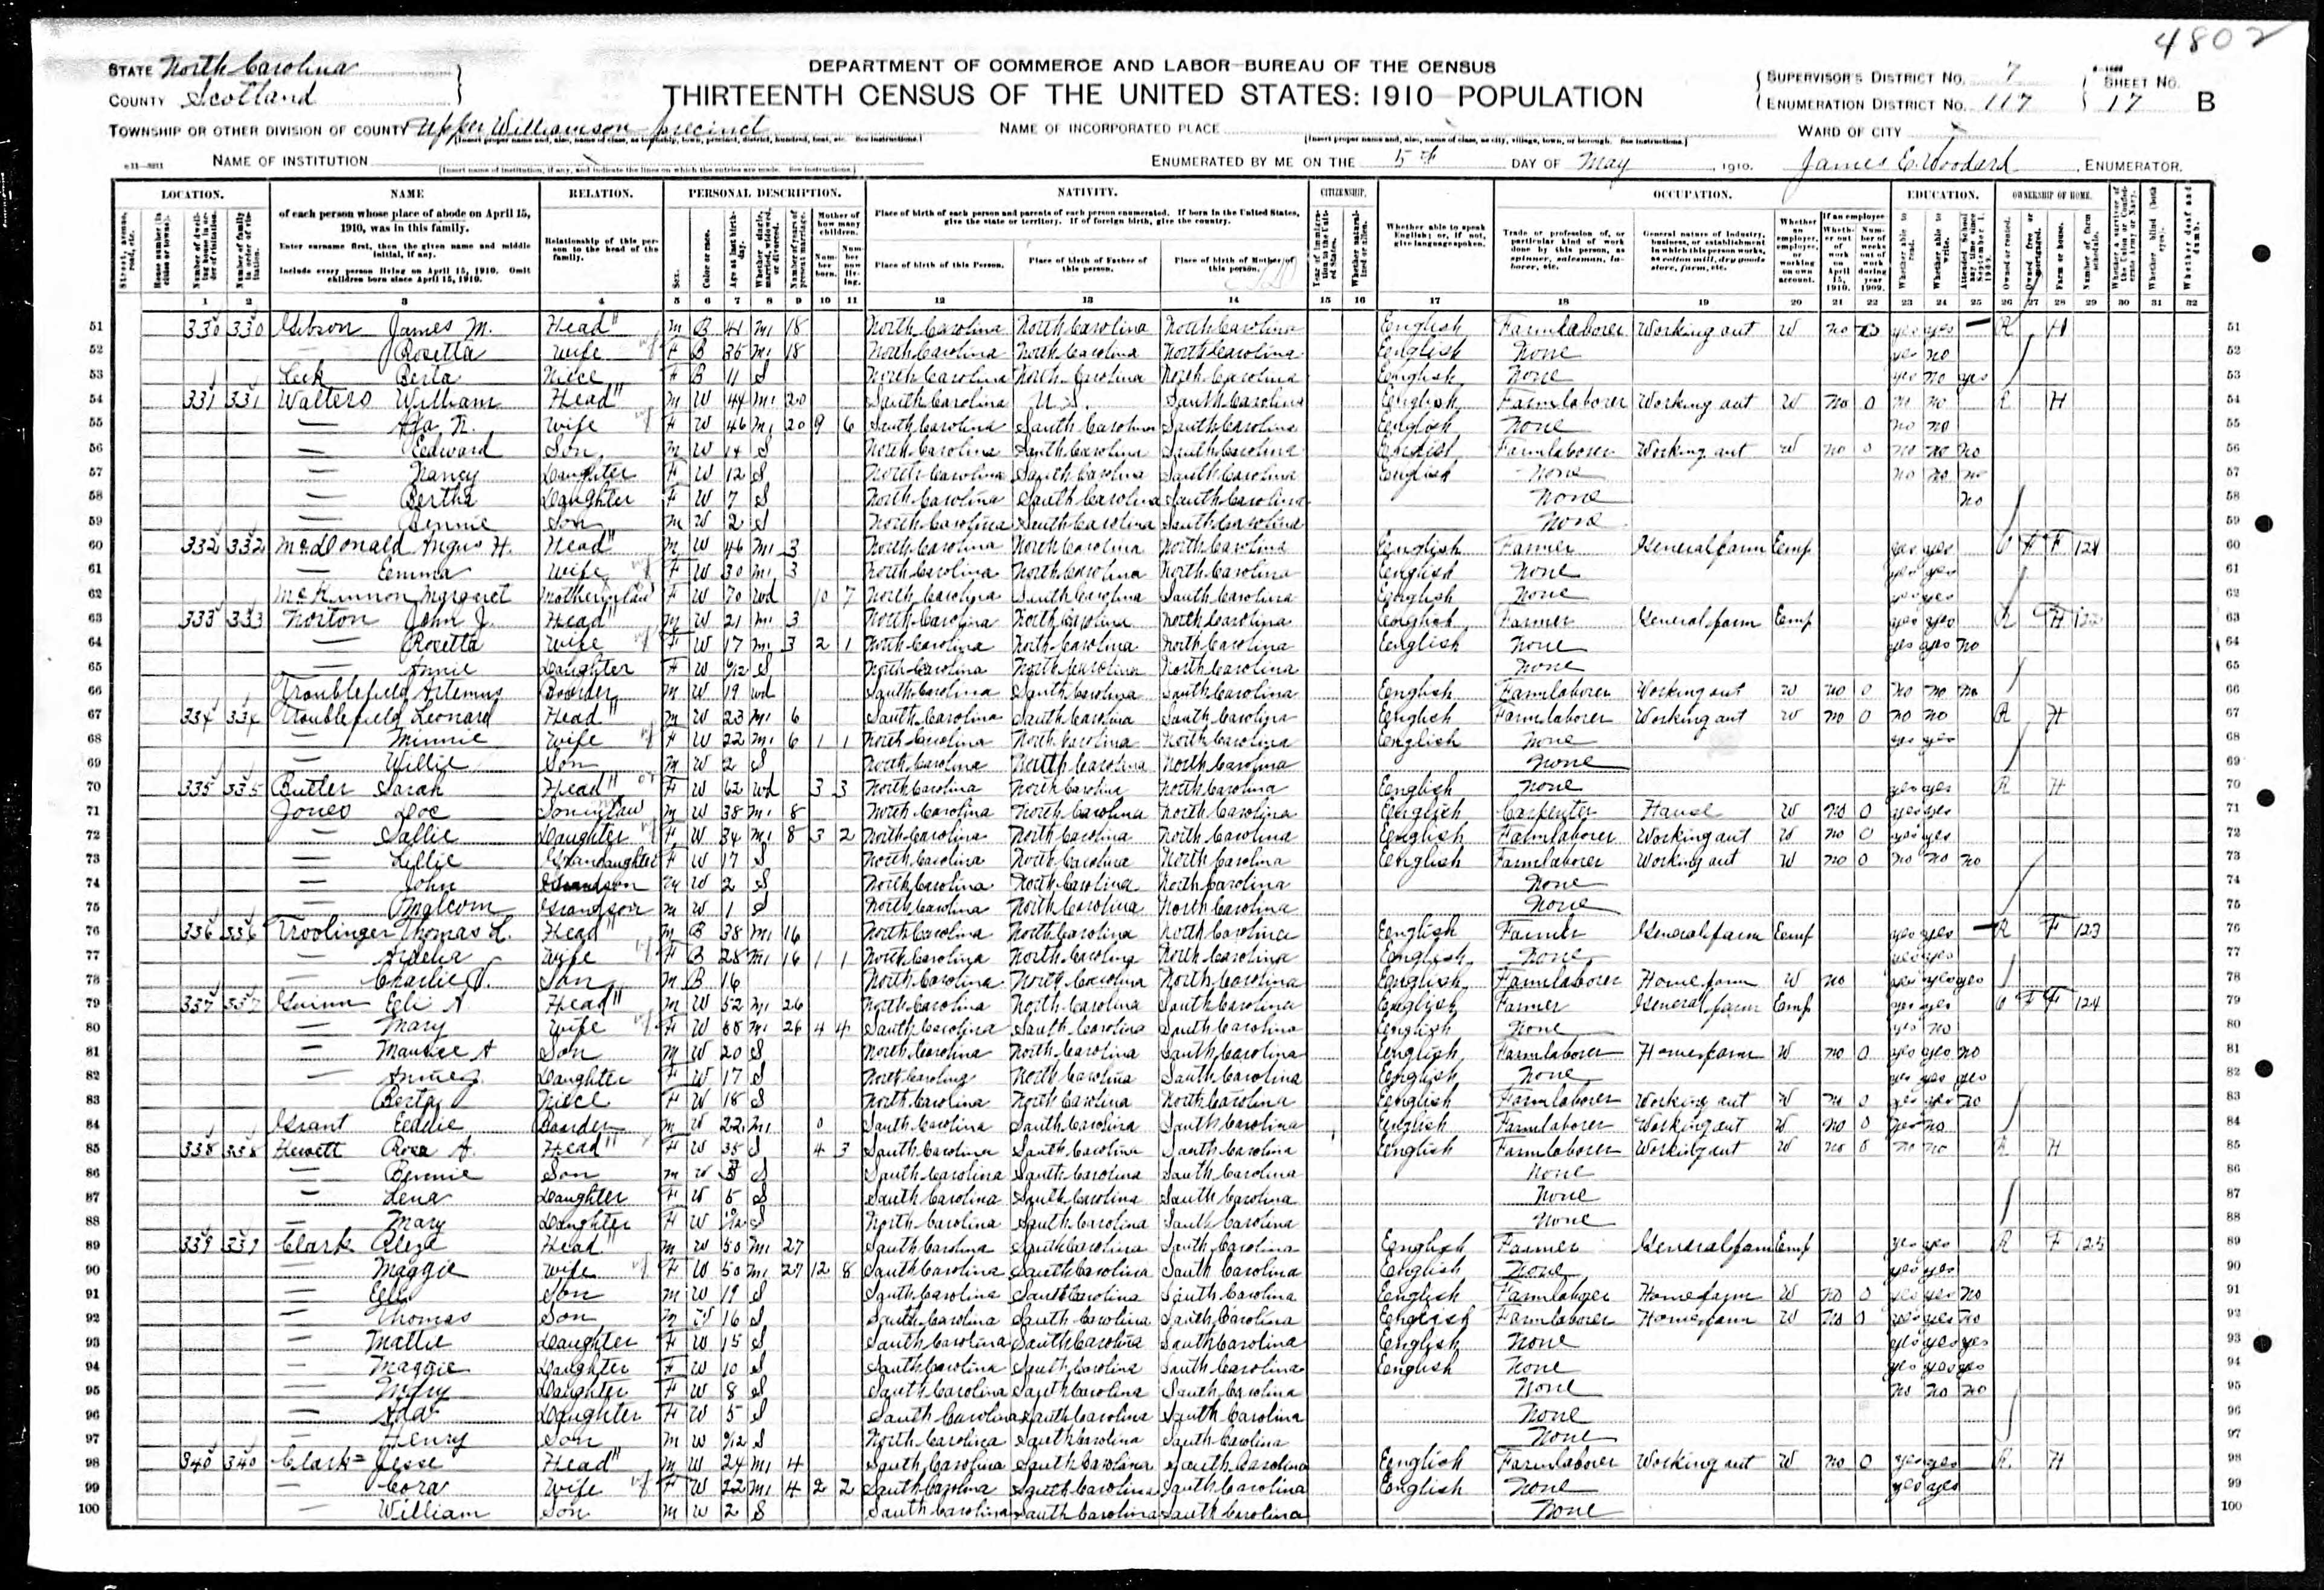 4802
STATE North Carolina
COUNTY Scotland
DEPARTMENT OF COMMERCE AND LABOR—BUREAU OF THE CENSUS
THIRTEENTH CENSUS OF THE UNITED STATES: 1910—POPULATION
SUPERVISOR'S DISTRICT No. 7
ENUMERATION DISTRICT No. 117
SHEET No. 17 B
TOWNSHIP OR OTHER DIVISION OF COUNTY Upper Williamson precinct
NAME OF INCORPORATED PLACE
WARD OF CITY
NAME OF INSTITUTION
ENUMERATED BY ME ON THE 5th DAY OF May, 1910. James E. Woodard, ENUMERATOR.
LOCATION. NAME RELATION. PERSONAL DESCRIPTION. NATIVITY. CITIZENSHIP. OCCUPATION. EDUCATION. OWNERSHIP OF HOME.
of each person whose place of abode on April 15, 1910, was in this family.
Enter surname first, then the given name and middle initial, if any.
Include every person living on April 15, 1910. Omit children born since April 15, 1910.
Relationship of this person to the head of the family.
Place of birth of each person and parents of each person enumerated. If born in the United States, give the state or territory. If of foreign birth, give the country.
Place of birth of this Person. Place of birth of Father of this person. Place of birth of Mother of this person.
Whether able to speak English; or, if not, give language spoken.
1 2 3 4 5 6 7 8 9 10 11 12 13 14 15 16 17 18 19 20 21 22 23 24 25 26 27 28 29 30 31 32
51 330 330 Gibson James M. Head M B 41 M1 18 North Carolina North Carolina North Carolina English Farm laborer Working out W no yes yes R H 51
52 — Rosetta Wife F B 35 M1 18 North Carolina North Carolina North Carolina English None yes no 52
53 Berta Niece F B 11 S North Carolina North Carolina North Carolina English None yes no yes 53
54 331 331 Walters William Head M W 44 M1 20 South Carolina U.S. South Carolina English Farm laborer Working out W no 0 no no R H 54
55 — Wife F W 46 M1 20 9 6 South Carolina South Carolina South Carolina English None no no 55
56 — Edward Son M W 14 S North Carolina South Carolina South Carolina English Farm laborer Working out W no 0 no no no 56
57 — Nancy Daughter F W 12 S North Carolina South Carolina South Carolina English None no no no 57
58 — Bertha Daughter F W 7 S North Carolina South Carolina South Carolina None no 58
59 — Bennie Son M W 2 S North Carolina South Carolina South Carolina None 59
60 332 332 McDonald Angus H. Head M W 46 M1 3 North Carolina North Carolina North Carolina English Farmer General farm Emp yes yes O F F 121 60
61 — Emma Wife F W 30 M1 3 North Carolina North Carolina North Carolina English None yes yes 61
62 McKinnon Margaret Mother in law F W 70 Wd 10 7 North Carolina South Carolina South Carolina English None yes yes 62
63 333 333 Norton John J. Head M W 21 M1 3 North Carolina North Carolina North Carolina English Farmer General farm Emp yes yes R H 122 63
64 — Rosetta Wife F W 17 M1 3 2 1 North Carolina North Carolina North Carolina English None yes yes no 64
65 — Annie Daughter F W S North Carolina North Carolina North Carolina None 65
66 Troublefield Artemus Boarder M W 19 Wd South Carolina South Carolina South Carolina English Farm laborer Working out W no 0 no no no 66
67 334 334 Troublefield Leonard Head M W 23 M1 6 South Carolina South Carolina South Carolina English Farm laborer Working out W no 0 no no R H 67
68 — Minnie Wife F W 22 M1 6 1 1 North Carolina North Carolina North Carolina English None yes yes 68
69 — Willie Son M W 2 S North Carolina North Carolina North Carolina None 69
70 335 335 Butler Sarah Head F W 62 Wd 3 3 North Carolina North Carolina North Carolina English None yes yes R H 70
71 Jones Doc Son in law M W 38 M1 8 North Carolina North Carolina North Carolina English Carpenter House W no 0 yes yes 71
72 — Sallie Daughter F W 34 M1 8 3 2 North Carolina North Carolina North Carolina English Farm laborer Working out W no 0 yes yes 72
73 — Lillie Granddaughter F W 17 S North Carolina North Carolina North Carolina English Farm laborer Working out W no 0 no no no 73
74 — John Grandson M W 2 S North Carolina North Carolina North Carolina None 74
75 — Malcom Grandson M W 1 S North Carolina North Carolina North Carolina None 75
76 336 336 Troolinger Thomas L. Head M B 38 M1 16 North Carolina North Carolina North Carolina English Farmer General farm Emp yes yes R F 123 76
77 — Ardelia Wife F B 28 M1 16 1 1 North Carolina North Carolina North Carolina English None yes yes 77
78 — Charlie Son M B 16 North Carolina North Carolina North Carolina English Farm laborer Home farm W no yes yes yes 78
79 337 337 Guinn Eli A Head M W 52 M1 26 North Carolina North Carolina South Carolina English Farmer General farm Emp yes yes O F F 124 79
80 — Mary Wife F W M1 26 4 4 South Carolina South Carolina South Carolina English None yes no 80
81 — Maurice A Son M W 20 S North Carolina North Carolina South Carolina English Farm laborer Home farm W no 0 yes yes no 81
82 — Annie J. Daughter F W 17 S North Carolina North Carolina South Carolina English None yes yes yes 82
83 Berta Niece F W 18 S North Carolina North Carolina North Carolina English Farm laborer Working out W no 0 yes yes no 83
84 Grant Eddie Boarder M W 22 M1 0 South Carolina South Carolina South Carolina English Farm laborer Working out W no 0 yes no 84
85 338 338 Hewett Rosa A. Head F W 35 S 4 3 South Carolina South Carolina South Carolina English Farm laborer Working out W no 0 no no R H 85
86 — Bennie Son M W S South Carolina South Carolina South Carolina None 86
87 — Lena Daughter F W 5 S South Carolina South Carolina South Carolina None 87
88 — Mary Daughter F W S North Carolina South Carolina South Carolina None 88
89 339 339 Clark Head M W 50 M1 27 South Carolina South Carolina South Carolina English Farmer General farm Emp yes yes R F 125 89
90 — Maggie Wife F W 50 M1 27 12 8 South Carolina South Carolina South Carolina English None yes yes 90
91 — Son M W 19 S South Carolina South Carolina South Carolina English Farm laborer Home farm W no 0 yes yes no 91
92 — Thomas Son M W 16 S South Carolina South Carolina South Carolina English Farm laborer Home farm W no 0 yes yes no 92
93 — Mattie Daughter F W 15 S South Carolina South Carolina South Carolina English None yes yes yes 93
94 — Maggie Daughter F W 10 S South Carolina South Carolina South Carolina English None yes yes yes 94
95 — Mary Daughter F W 8 S South Carolina South Carolina South Carolina None no no no 95
96 — Ada Daughter F W 5 S South Carolina South Carolina South Carolina None 96
97 — Henry Son M W S North Carolina South Carolina South Carolina None 97
98 340 340 Clark Jesse Head M W 24 M1 4 South Carolina South Carolina South Carolina English Farm laborer Working out W no 0 yes yes R H 98
99 — Cora Wife F W 22 M1 4 2 2 South Carolina South Carolina South Carolina English None yes yes 99
100 — William Son M W 2 S South Carolina South Carolina South Carolina None 100